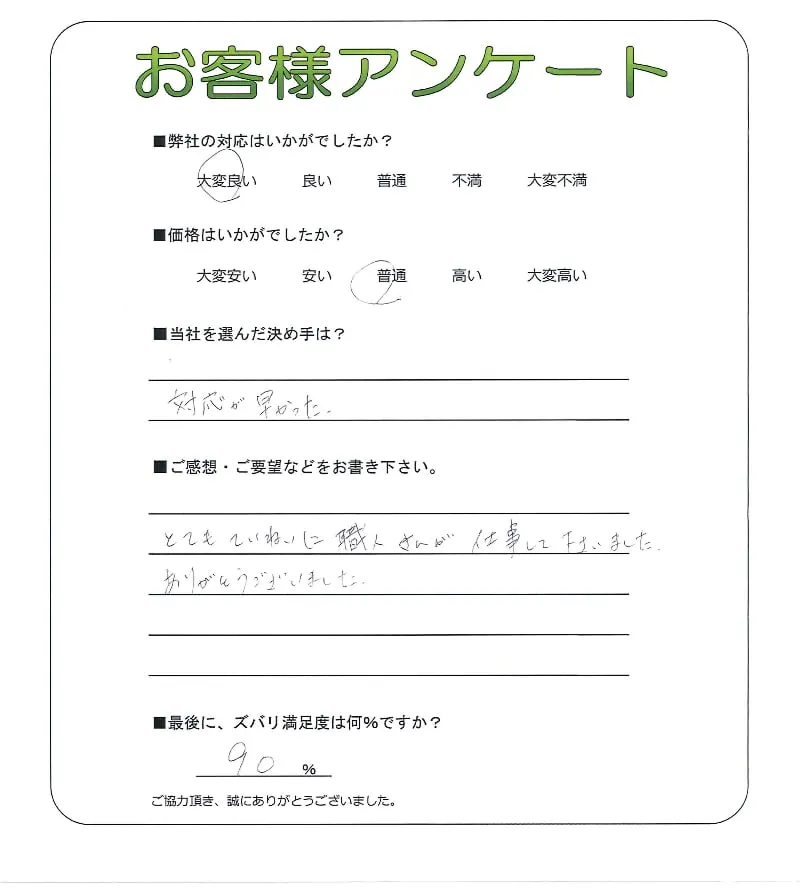 お客様アンケート
■弊社の対応はいかがでしたか？
大変良い 良い 普通 不満 大変不満
■価格はいかがでしたか？
大変安い 安い 普通 高い 大変高い
■当社を選んだ決め手は？
対応が早かった.
■ご感想・ご要望などをお書き下さい。
とてもていねいに職人さんが仕事して下さいました.
ありがとうございました.
■最後に、ズバリ満足度は何％ですか？
90 %
ご協力頂き、誠にありがとうございました。